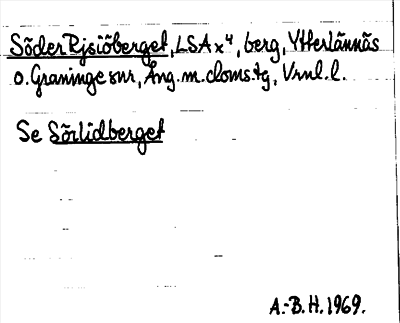 Söder Rjsiöberget, LSA x⁴, berg, Ytterlännäs
o. Graninge snr, Ång. m. doms.tg, Vrnl. l.
Se Sörlidberget
A.-B. H. 1969.